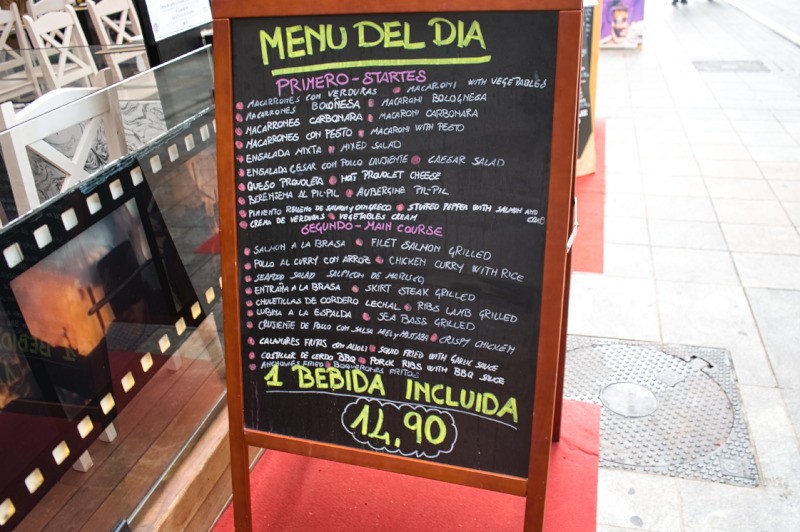 MENU DEL DIA
PRIMERO-STARTES
MACARRONES CON VERDURAS MACARONI WITH VEGETABLES
MACARRONES BOLOÑESA MACARONI BOLOGNESA
MACARRONES CARBONARA MACARONI CARBONARA
MACARRONES CON PESTO MACARONI WITH PESTO
ENSALADA MIXTA MIXED SALAD
ENSALADA CESAR CON POLLO CRUJIENTE CAEGAR SALAD
QUESO PROVOLETA HOT PROVOLET CHEESE
BERENJENA AL PIL-PIL AUBERGINE PIL-PIL
PIMIENTO RELLENO DE SALMON Y CANGREGO STUFFED PEPPER WITH SALMON AND
CRAB
CREMA DE VERDURAS VEGETABLES CREAM
SEGUNDO-MAIN COURSE
SALMON A LA BRASA FILET SALMON GRILLED
POLLO AL CURRY CON ARROZ CHICKEN CURRY WITH RICE
SEAFOOD SALAD SALPICON DE MARISCO
ENTRAÑA A LA BRASA SKIRT STEAK GRILLED
CHULETILLAS DE CORDERO LECHAL RIBS LAMB GRILLED
LUBINA A LA ESPALDA SEA BASS GRILLED
CRUJIENTE DE POLLO CON SALSA MIEL Y MOSTAZA CRISPY CHICKEN
CALAMARES FRITOS CON ALIOLI SQUID FRIED WITH GARLIC SAUCE
COSTILLAR DE CERDO BBQ PORCK RIBS WITH BBQ SAUCE
BOQUERONES FRITOS
1 BEBIDA INCLUIDA
14,90